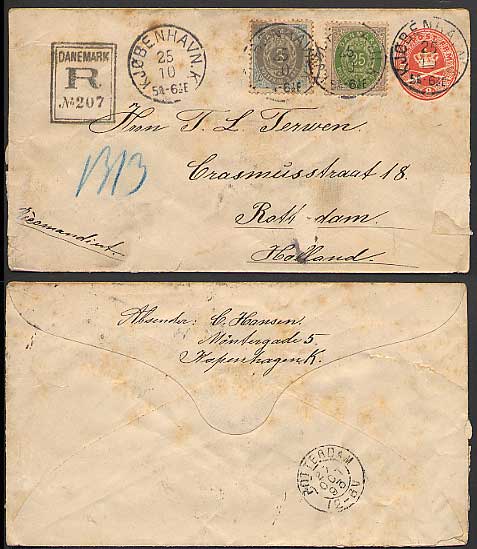 DANEMARK
R
No 207
KJØBENHAVN K.
25
10
5½-6½E
3
25
KJØBENHAVN
25
5½-6½E
Herr T. L. Terwen.
Erasmusstraat 18.
Rott-dam.
Holland.
1313
Recomandirt.
Absender: C. Hansen.
Möntergade 5.
Kopenhagen K.
ROTTERDAM